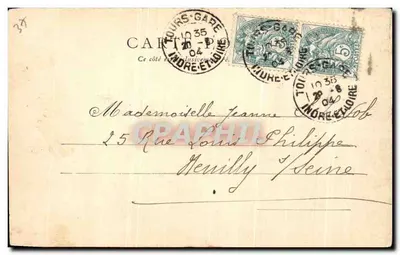 38
TOURS-GARE
10 35
20 - 8
04
INDRE-ET-LOIRE
TOURS-GARE
INDRE-ET-LOIRE
5
TOURS-GARE
10 35
20 - 8
04
INDRE-ET-LOIRE
Ce côté
Mademoiselle Jeanne
25 Rue Louis Philippe
Neuilly s/Seine
CPAPHIL